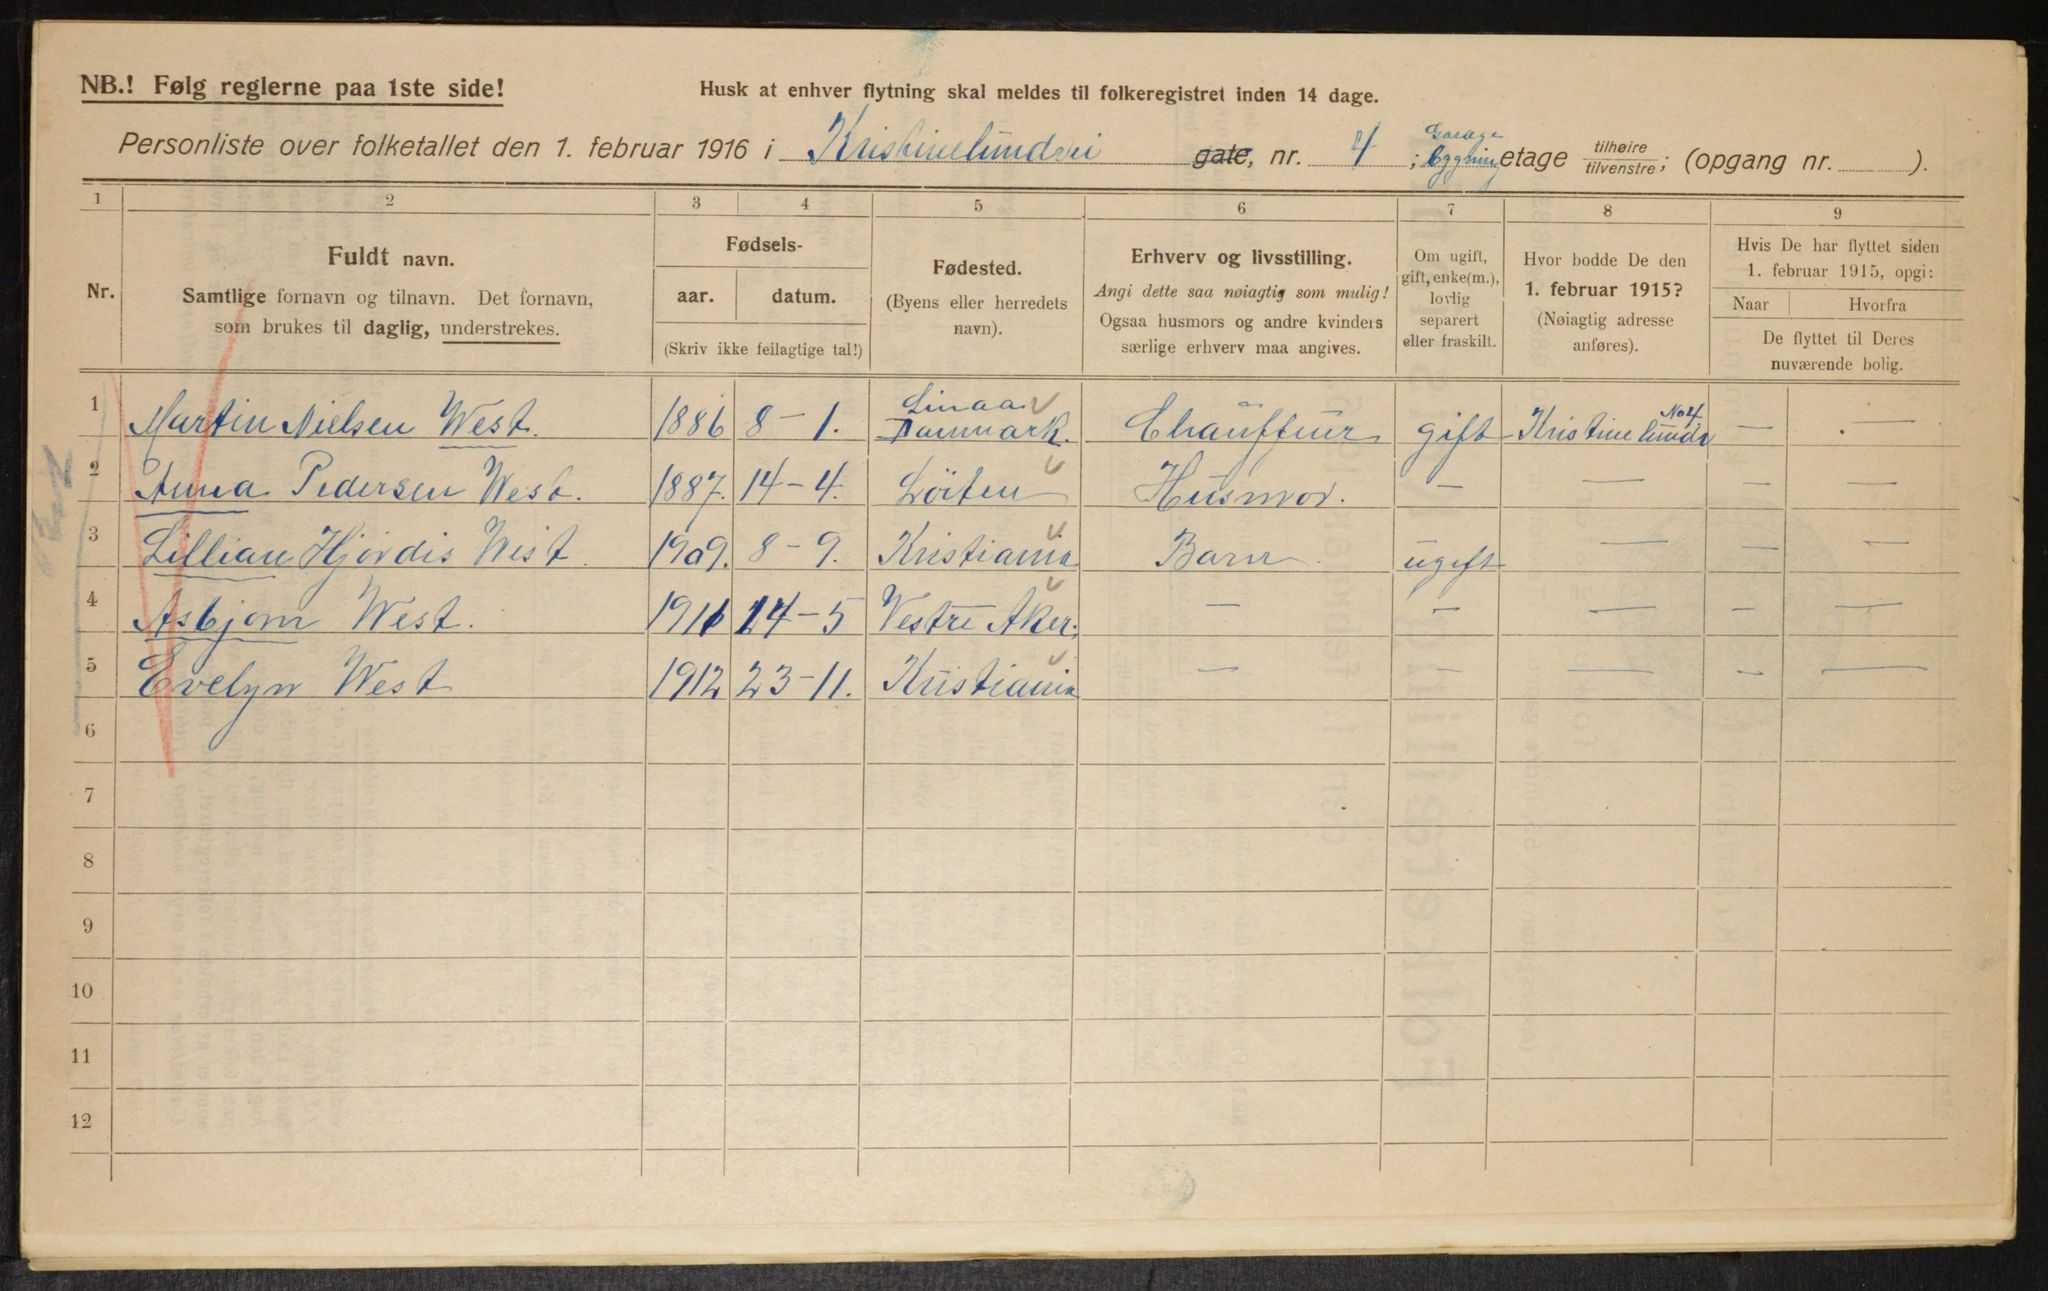 NB.! Følg reglerne paa 1ste side!
Husk at enhver flytning skal meldes til folkeregistret inden 14 dage.
Personliste over folketallet den 1. februar 1916 i Kristinelundvei gate, nr. 4 ; Garage bygning etage tilhøire tilvenstre; (opgang nr. ).
1 2 3 4 5 6 7 8 9
Nr.
Fuldt navn.
Samtlige fornavn og tilnavn. Det fornavn,
som brukes til daglig, understrekes.
Fødsels-
aar. datum.
(Skriv ikke feilagtige tal!)
Fødested.
(Byens eller herredets
navn).
Erhverv og livsstilling.
Angi dette saa nøiagtig som mulig!
Ogsaa husmors og andre kvinders
særlige erhverv maa angives.
Om ugift,
gift, enke(m.),
lovlig
separert
eller fraskilt.
Hvor bodde De den
1. februar 1915?
(Nøiagtig adresse
anføres).
Hvis De har flyttet siden
1. februar 1915, opgi:
Naar Hvorfra
De flyttet til Deres
nuværende bolig.
1 Martin Nielsen West. 1886 8 - 1. Linaa Danmark. Chauffeur gift Kristinelundv No 4 — —
2 Anna Pedersen West. 1887. 14 - 4. Löiten Husmor. — — — —
3 Lillian Hjördis West. 1909. 8 - 9. Kristiania Barn ugift — — —
4 Asbjørn West. 1911 14 - 5 Vestre Aker. — — — — —
5 Evelyn West 1912 23 - 11. Kristiania — — — — —
6
7
8
9
10
11
12